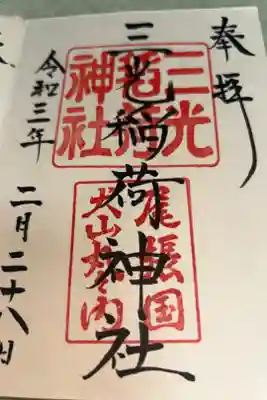 奉拝
三光稲荷神社
三光稲荷神社
尾張国犬山城内
令和三年
二月二十八日